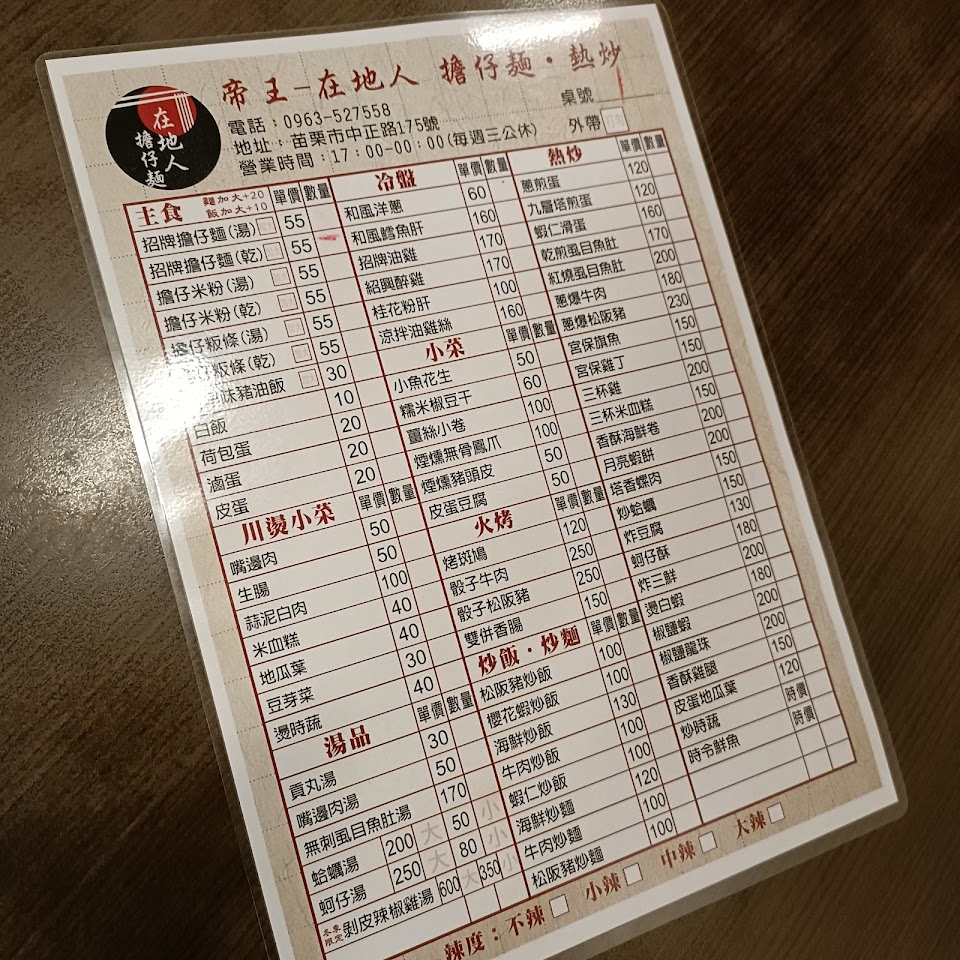 帝王-在地人 擔仔麵・熱炒
在地人
擔仔麵
電話：0963-527558
地址：苗栗市中正路175號
營業時間：17：00-00：00(每週三公休)
桌號
外帶
主食 麵加大+20 飯加大+10 單價 數量
招牌擔仔麵(湯) 55
招牌擔仔麵(乾) 55
擔仔米粉(湯) 55
擔仔米粉(乾) 55
擔仔粄條(湯) 55
粄條(乾) 55
味豬油飯 30
白飯 10
荷包蛋 20
滷蛋 20
皮蛋 20
川燙小菜 單價 數量
嘴邊肉 50
生腸 50
蒜泥白肉 100
米血糕 40
地瓜葉 40
豆芽菜 30
燙時蔬 40
湯品 單價 數量
貢丸湯 30
嘴邊肉湯 50
無刺虱目魚肚湯 170
蛤蠣湯 200 大 50 小
蚵仔湯 250 大 80 小
冬季限定 剝皮辣椒雞湯 600 大 350 小
冷盤 單價 數量
和風洋蔥 60
和風鱈魚肝 160
招牌油雞 170
紹興醉雞 170
桂花粉肝 100
涼拌油雞絲 160
小菜 單價 數量
小魚花生 50
糯米椒豆干 60
薑絲小卷 100
煙燻無骨鳳爪 100
煙燻豬頭皮 50
皮蛋豆腐 50
火烤 單價 數量
烤斑鳩 120
骰子牛肉 250
骰子松阪豬 250
雙併香腸 150
炒飯・炒麵 單價 數量
松阪豬炒飯 100
櫻花蝦炒飯 100
海鮮炒飯 130
牛肉炒飯 100
蝦仁炒飯 100
海鮮炒麵 120
牛肉炒麵 100
松阪豬炒麵 100
熱炒 單價 數量
蔥煎蛋 120
九層塔煎蛋 120
蝦仁滑蛋 160
乾煎虱目魚肚 170
紅燒虱目魚肚 200
蔥爆牛肉 180
蔥爆松阪豬 230
宮保旗魚 150
宮保雞丁 150
三杯雞 200
三杯米血糕 150
香酥海鮮卷 200
月亮蝦餅 200
塔香螺肉 150
炒蛤蠣 150
炸豆腐 130
蚵仔酥 180
炸三鮮 200
燙白蝦 180
椒鹽蝦 200
椒鹽龍珠 200
香酥雞腿 150
皮蛋地瓜葉 120
炒時蔬 時價
時令鮮魚 時價
辣度：不辣 小辣 中辣 大辣